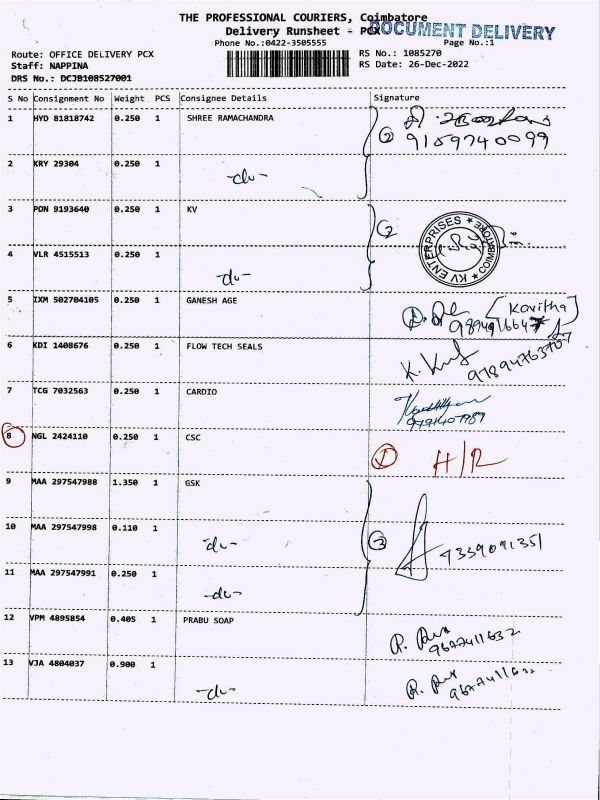 THE PROFESSIONAL COURIERS, Coimbatore
Delivery Runsheet - PCX
DOCUMENT DELIVERY
Phone No.:0422-3505555
Page No.:1
Route: OFFICE DELIVERY PCX
RS No.: 1085270
Staff: NAPPINA
RS Date: 26-Dec-2022
DRS No.: DCJB108527001
S No Consignment No Weight PCS Consignee Details Signature
1 HYD 81818742 0.250 1 SHREE RAMACHANDRA
② 9159740099
2 KRY 29304 0.250 1 -do-
3 PON 9193640 0.250 1 KV
② KV ENTERPRISES ★ COIMBATORE ★
4 VLR 4515513 0.250 1 -do-
5 IXM 502704105 0.250 1 GANESH AGE
[Kavitha]
6 KDI 1408676 0.250 1 FLOW TECH SEALS
97894763707
7 TCG 7032563 0.250 1 CARDIO
8 NGL 2424110 0.250 1 CSC ① H/R
9 MAA 297547988 1.350 1 GSK
10 MAA 297547998 0.110 1 -do- ③ 7339091351
11 MAA 297547991 0.250 1 -do-
12 VPM 4895854 0.405 1 PRABU SOAP
9677411632
13 VJA 4804037 0.900 1 -do-